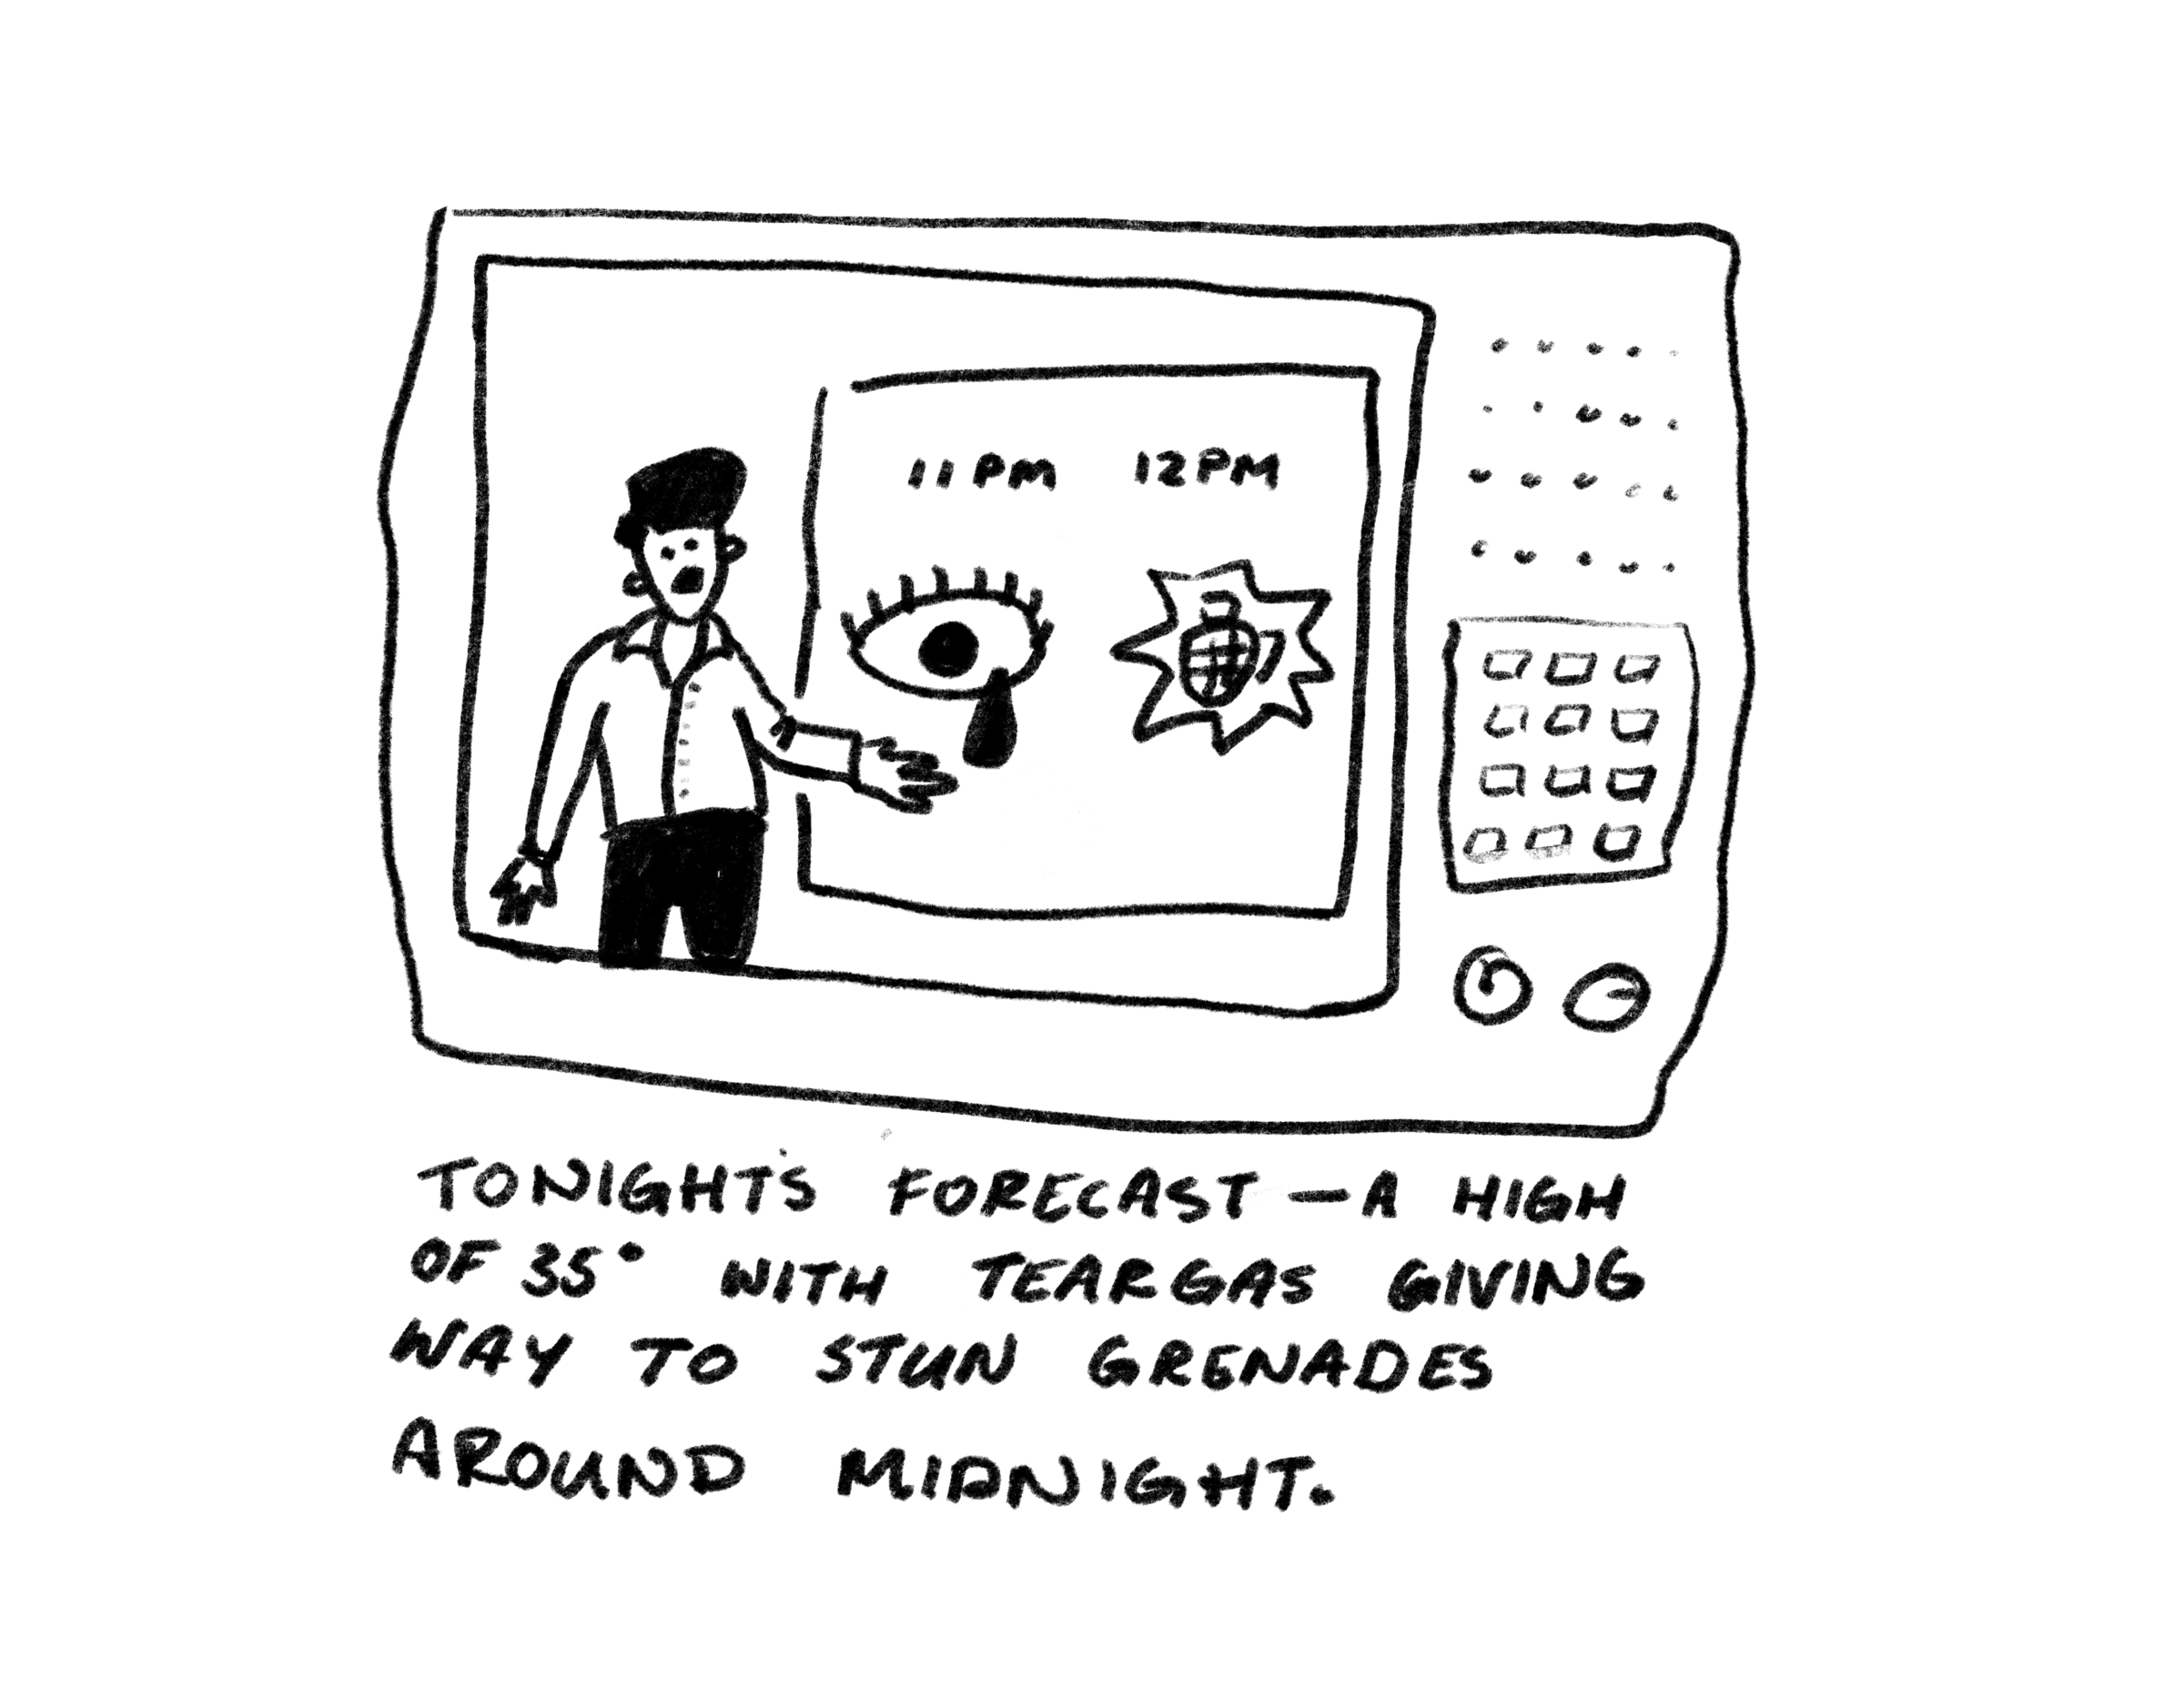 11PM 12PM
TONIGHT'S FORECAST – A HIGH
OF 35° WITH TEARGAS GIVING
WAY TO STUN GRENADES
AROUND MIDNIGHT.